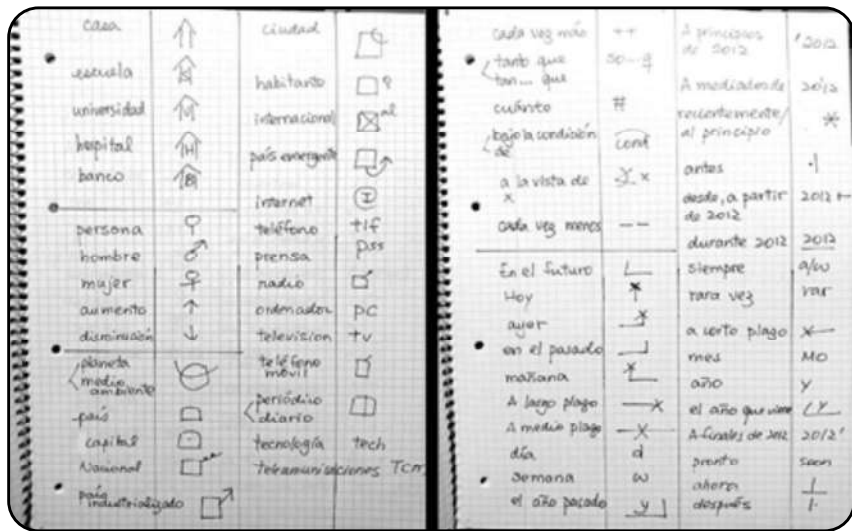 casa
escuela
universidad
hospital H
banco B
persona
hombre
mujer
aumento ↑
disminución ↓
planeta
medio
ambiente
país
capital
Nacional
país
industrializado
ciudad
habitante
internacional al
país emergente
internet I
teléfono tlf
prensa pss
radio
ordenador PC
television tv
teléfono
móvil
periódico
diario
tecnología tech
cada vez más ++
tanto que so...q
tan... que
cuánto #
bajo la condición cond
de
a la vista de
x
cada vez menos --
En el futuro
Hoy
ayer
en el pasado
mañana
A largo plazo —x
A medio plazo —x—
día d
semana w
el año pasado y
A principios '2012
de 2012
A mediados de 20'12
recientemente/ *
al principio
antes
desde, a partir 2012 ←
de 2012
durante 2012 2012
siempre a/w
rara vez rar
a corto plazo x—
mes MO
año y
el año que viene y
A finales de 2012 2012'
pronto soon
ahora
después